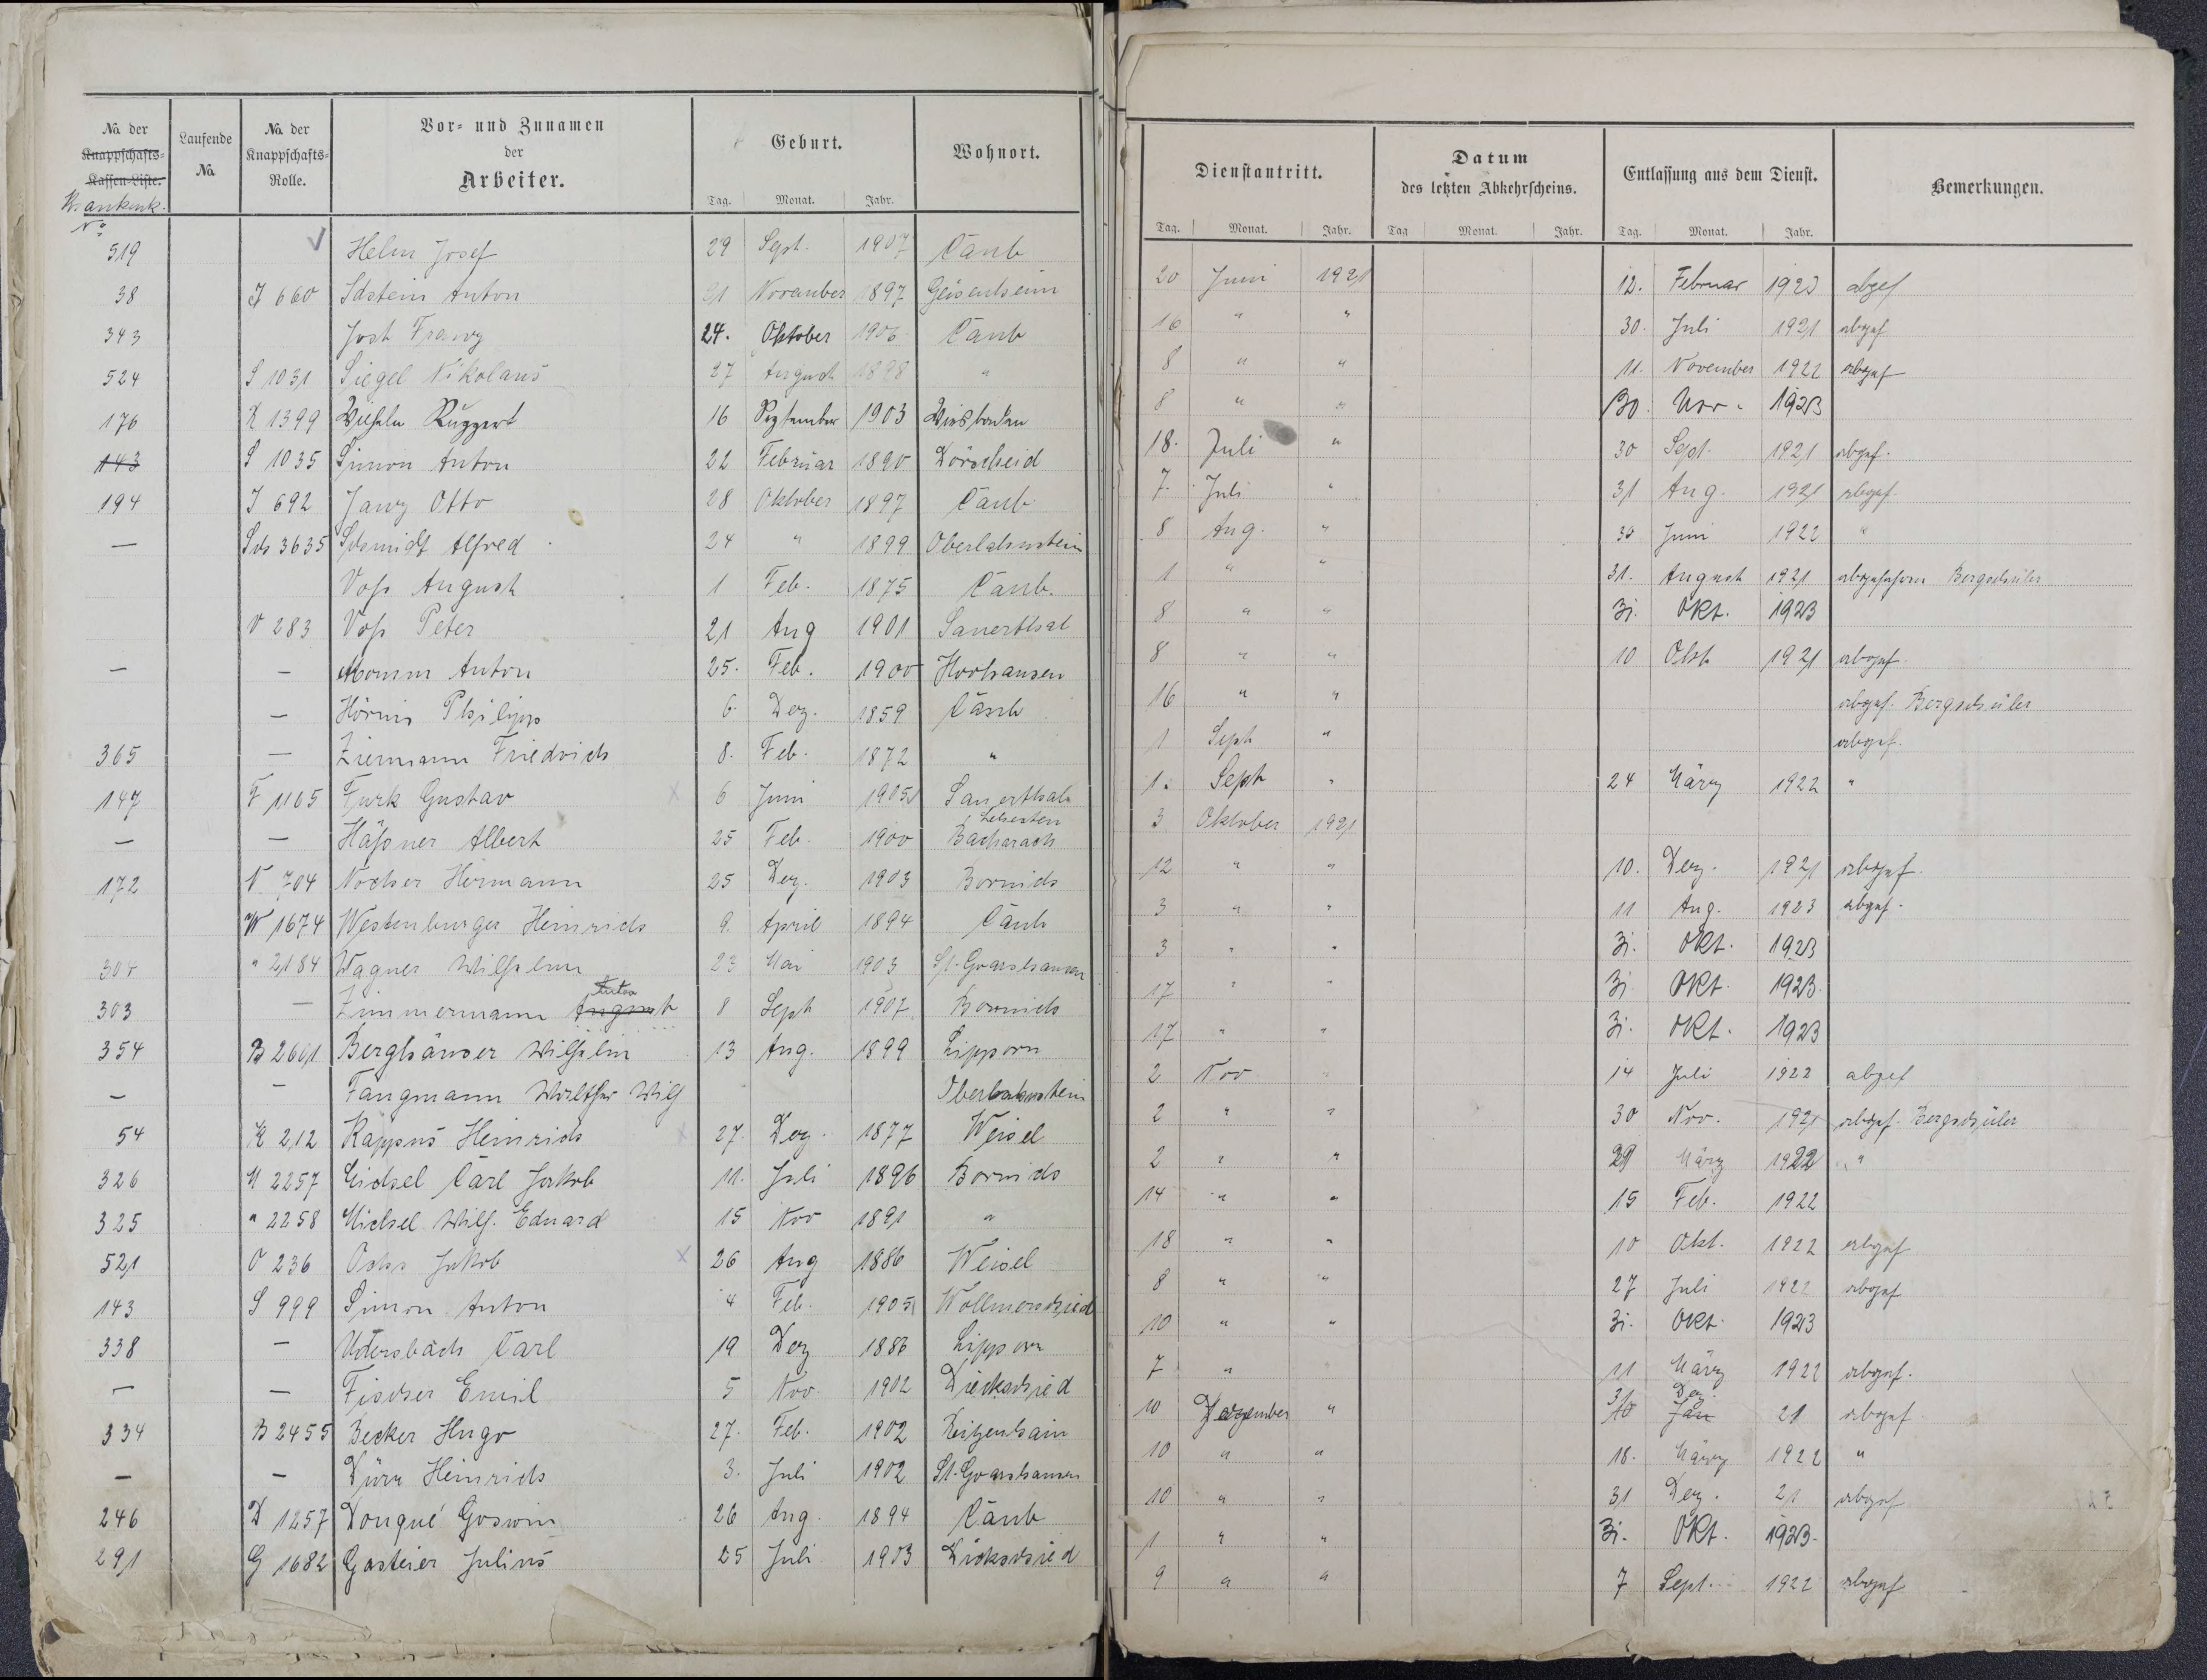 No. der Knappschafts-Kassen-Liste. Krankenk. No
Laufende No.
No. der Knappschafts-Rolle.
Vor- und Zunamen der Arbeiter.
Geburt.
Wohnort.
Tag. Monat. Jahr.
519 Helm Josef 29 Sept. 1907 Caub
38 J 660 Idstein Anton 21 November 1897 Geisenheim
343 Jost Franz 24. Oktober 1906 Caub
524 S 1031 Siegel Nikolaus 27 August 1898 "
176 R 1399 Wilhelm Ruggert 16 September 1903 Wiesbaden
143 S 1035 Simon Anton 22 Februar 1890 Dörscheid
194 J 692 Janz Otto 28 Oktober 1897 Caub
— Sch 3635 Schmidt Alfred 24 " 1899 Oberlahnstein
Voß August 1 Feb. 1875 Caub.
V 283 Voß Peter 21 Aug 1901 Sauerthal
— — Momm Anton 25. Feb. 1900 Horhausen
— Hörnis Philipp 6. Dez. 1859 Caub
365 — Ziermann Friedrich 8. Feb. 1872 "
147 F 1165 Furk Gustav x 6 Juni 1905 Sauerthal
— — Häßner Albert 25 Feb. 1900 Lehesten Bacharach
172 N 704 Nocher Hermann 25 Dez. 1903 Bornich
W 1674 Westenburger Heinrich 9. April 1894 Caub
304 " 2184 Wagner Wilhelm 23 Mai 1903 St. Goarshausen
303 — Zimmermann August Anton 8 Sept 1907 Bornich
354 B 2661 Berghäuser Wilhelm 13 Aug. 1899 Lipporn
— — Fangmann Walther Wilh Oberlahnstein
54 K 212 Kappus Heinrich x 27. Dez. 1877 Weisel
326 M 2257 Michel Carl Jakob 11. Juli 1896 Bornich
325 " 2258 Michel Wilh. Eduard 15 Nov 1891 "
521 O 236 Ochs Jakob x 26 Aug 1886 Weisel
143 S 999 Simon Anton 4 Feb. 1905 Wollmerschied
338 — Udersbach Carl 19 Dez 1886 Lipporn
— — Fischer Emil 5 Nov. 1902 Dickschied
334 B 2455 Becker Hugo 27. Feb. 1902 Reitzenhain
— — Dürr Heinrich 3. Juli 1902 St. Goarshausen
246 D 1257 Donqué Goswin 26 Aug. 1894 Caub
291 G 1682 Gasteier Julius 25 Juli 1903 Dickschied
Dienstantritt.
Datum des letzten Abkehrscheins.
Entlassung aus dem Dienst.
Bemerkungen.
Tag. Monat. Jahr. Tag Monat. Jahr. Tag. Monat. Jahr.
20 Juni 1921 12. Februar 1923 abgef
16 " " 30. Juli 1921 abgef
8 " " 11. November 1922 abgef
8 " " 30. Nov. 1923
18. Juli " 30 Sept. 1921 abgef.
7. Juli " 31 Aug. 1921 abgef.
8 Aug. " 30 Juni 1922 "
1 " " 31. August 1921 abgefahren Bergschüler
8 " " 31. Okt. 1923
8 " " 10 Okt. 1921 abgef
16 " " abgef. Bergschüler
1 Sept " abgef.
1. Sept " 24 März 1922 "
3 Oktober 1921
12 " " 10. Dez. 1921 abgef.
3 " " 11 Aug. 1923 abgef.
3 " " 31. Okt. 1923
17 " " 31. Okt. 1923.
17 " " 31. Okt. 1923
2 Nov " 14 Juli 1922 abgef
2 " " 30 Nov. 1921 abgef. Bergschüler
2 " " 29 März 1922 "
14 " " 15 Feb. 1922
18 " " 10 Okt. 1922 abgef
8 " " 27 Juli 1922 abgef
10 " " 31. Okt. 1923
7 " " 11 März 1922 abgef.
10 Dezember " 10 Jan 31 Dez. 21 abgef
10 " " 18. März 1922 "
10 " " 31 Dez. 21 abgef
1 " " 31. Okt. 1923.
9 " " 7 Sept. 1922 abgef